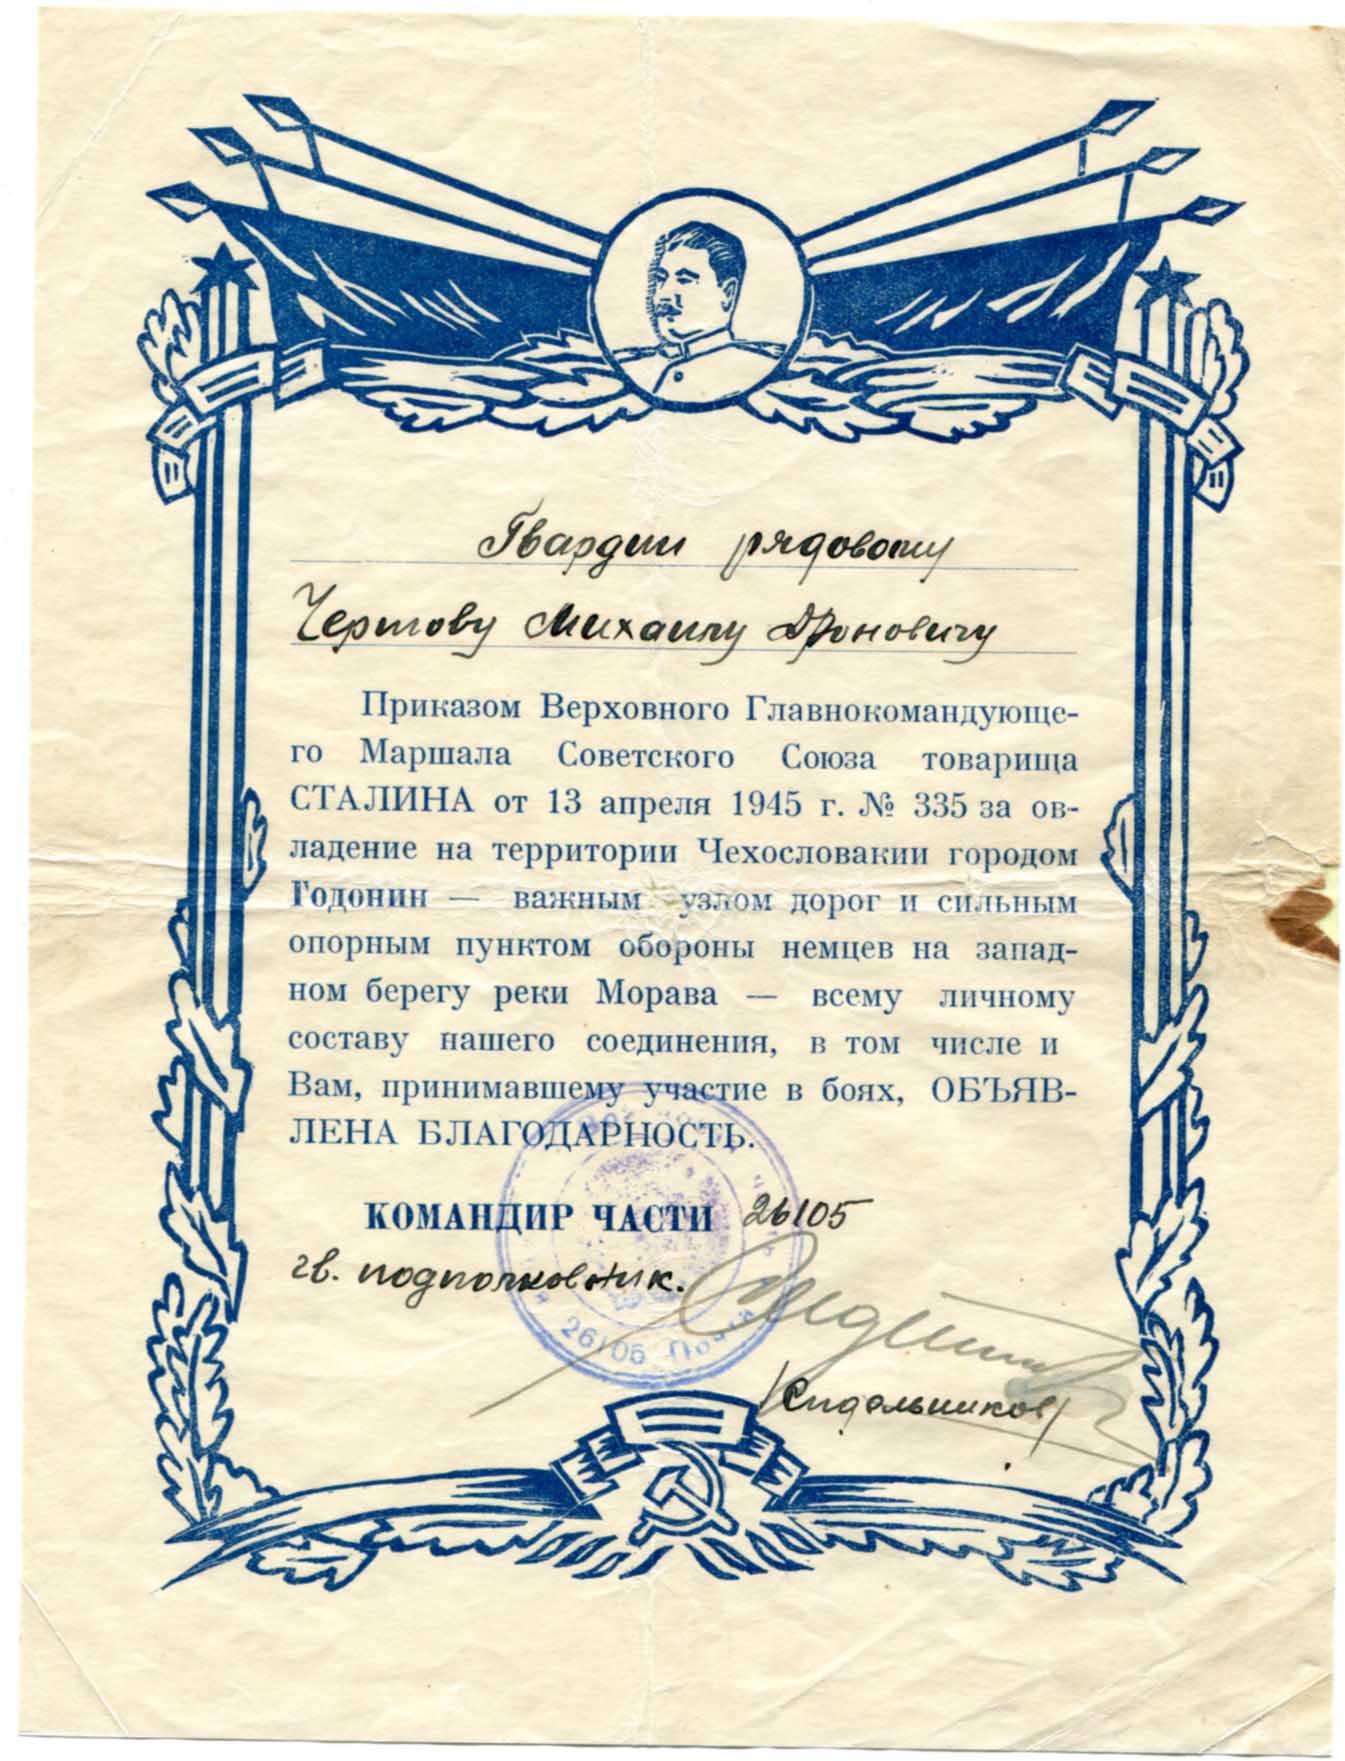 Гвардии рядовому
Чертову Михаилу Дроновичу
Приказом Верховного Главнокомандующе-
го Маршала Советского Союза товарища
СТАЛИНА от 13 апреля 1945 г. № 335 за ов-
ладение на территории Чехословакии городом
Годонин — важным узлом дорог и сильным
опорным пунктом обороны немцев на запад-
ном берегу реки Морава — всему личному
составу нашего соединения, в том числе и
Вам, принимавшему участие в боях, ОБЪЯВ-
ЛЕНА БЛАГОДАРНОСТЬ.
КОМАНДИР ЧАСТИ 26105
гв. подполковник.
/Сидельников/
26105 Почта